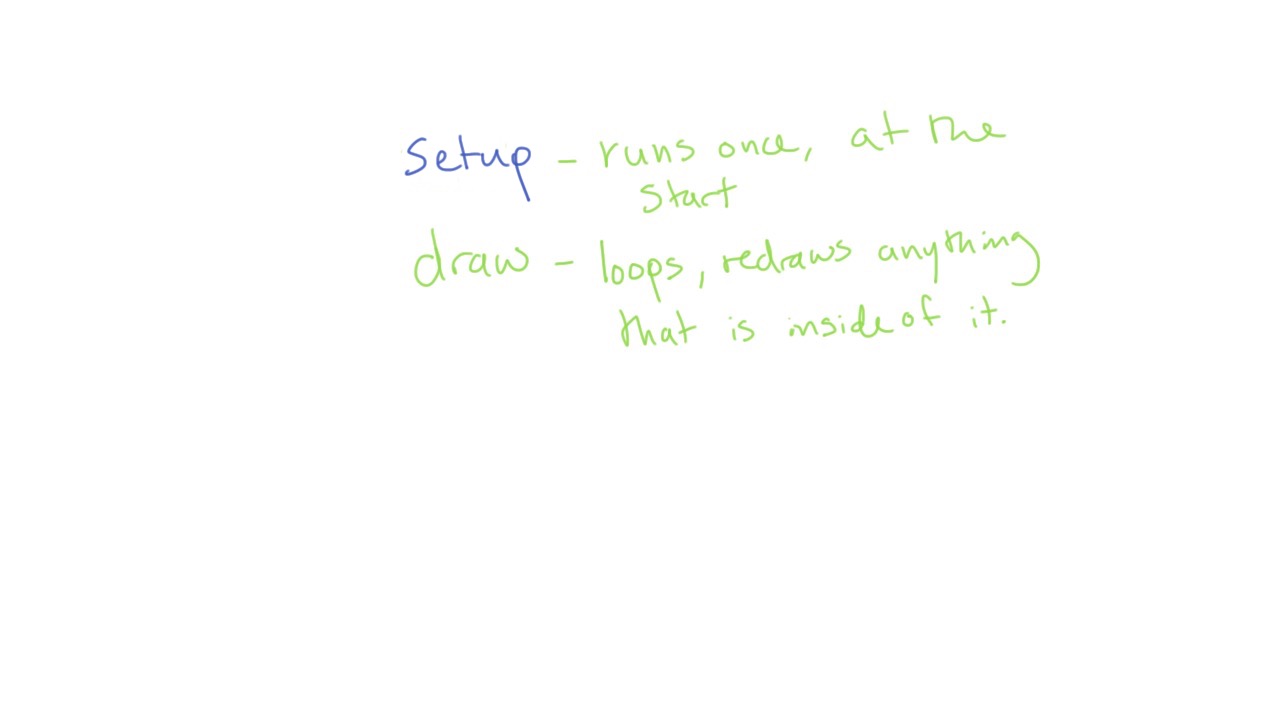 Setup - runs once, at the
start
draw - loops, redraws anything
that is inside of it.